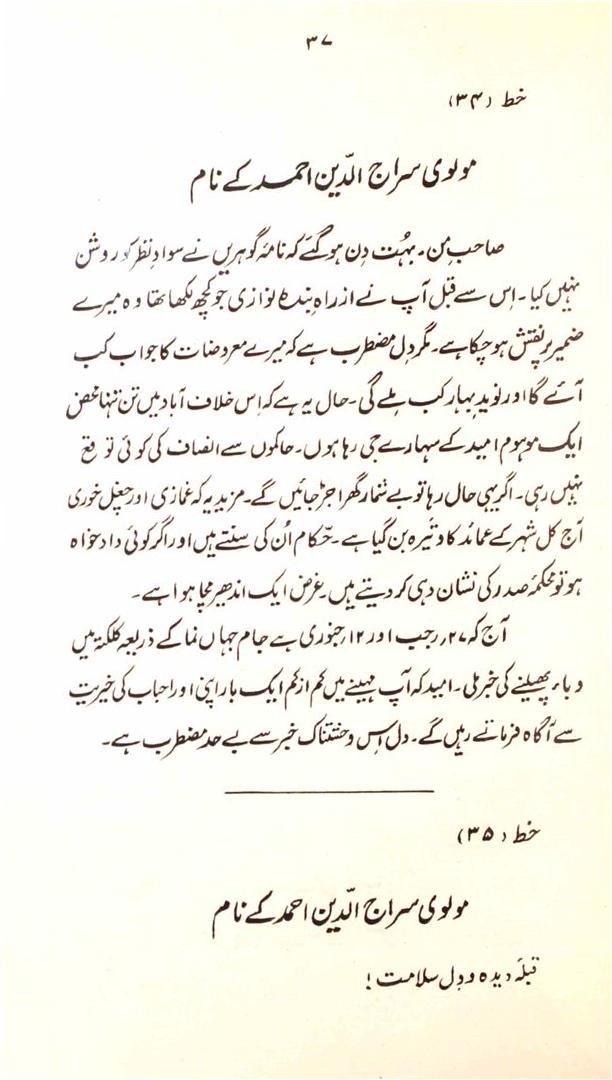 ۳۷
خط (۳۴)
مولوی سراج الدّین احمد کے نام
صاحبِ من۔ بہُت دِن ہو گئے کہ نامۂ گوہریں نے سوادِ نظر کو روشن
نہیں کیا۔ اِس سے قبل آپ نے از راہِ بندہ نوازی جو کچھ لکھا تھا وہ میرے
ضمیر پر نقش ہو چکا ہے۔ مگر دِل مضطرب ہے کہ میرے معروضات کا جواب کب
آئے گا اور نویدِ بہار کب ملے گی۔ حال یہ ہے کہ اِس خلاف آباد میں تنِ تنہا محض
ایک موہوم امید کے سہارے جی رہا ہوں۔ حاکموں سے انصاف کی کوئی توقع
نہیں رہی۔ اگر یہی حال رہا تو بے شمار گھر اجڑ جائیں گے۔ مزید یہ کہ غمازی اور چغل خوری
آج کل شہر کے عمائد کا وتیرہ بن گیا ہے۔ حّکام اُن کی سنتے ہیں اور اگر کوئی دادخواہ
ہو تو محکمۂ صدر کی نشان دہی کر دیتے ہیں۔ غرض ایک اندھیر مچا ہوا ہے۔
آج کہ ۲۷؍ رجب اور ۱۲؍ جنوری ہے جامِ جہاں نما کے ذریعہ کلکتہ میں
وباء پھیلنے کی خبر ملی۔ امید کہ آپ مہینے میں کم از کم ایک بار اپنی اور احباب کی خیریت
سے آگاہ فرماتے رہیں گے۔ دل اِس وحشتناک خبر سے بے حد مضطرب ہے۔
خط (۳۵)
مولوی سراج الدّین احمد کے نام
قبلۂ دیدہ و دِل سلامت!